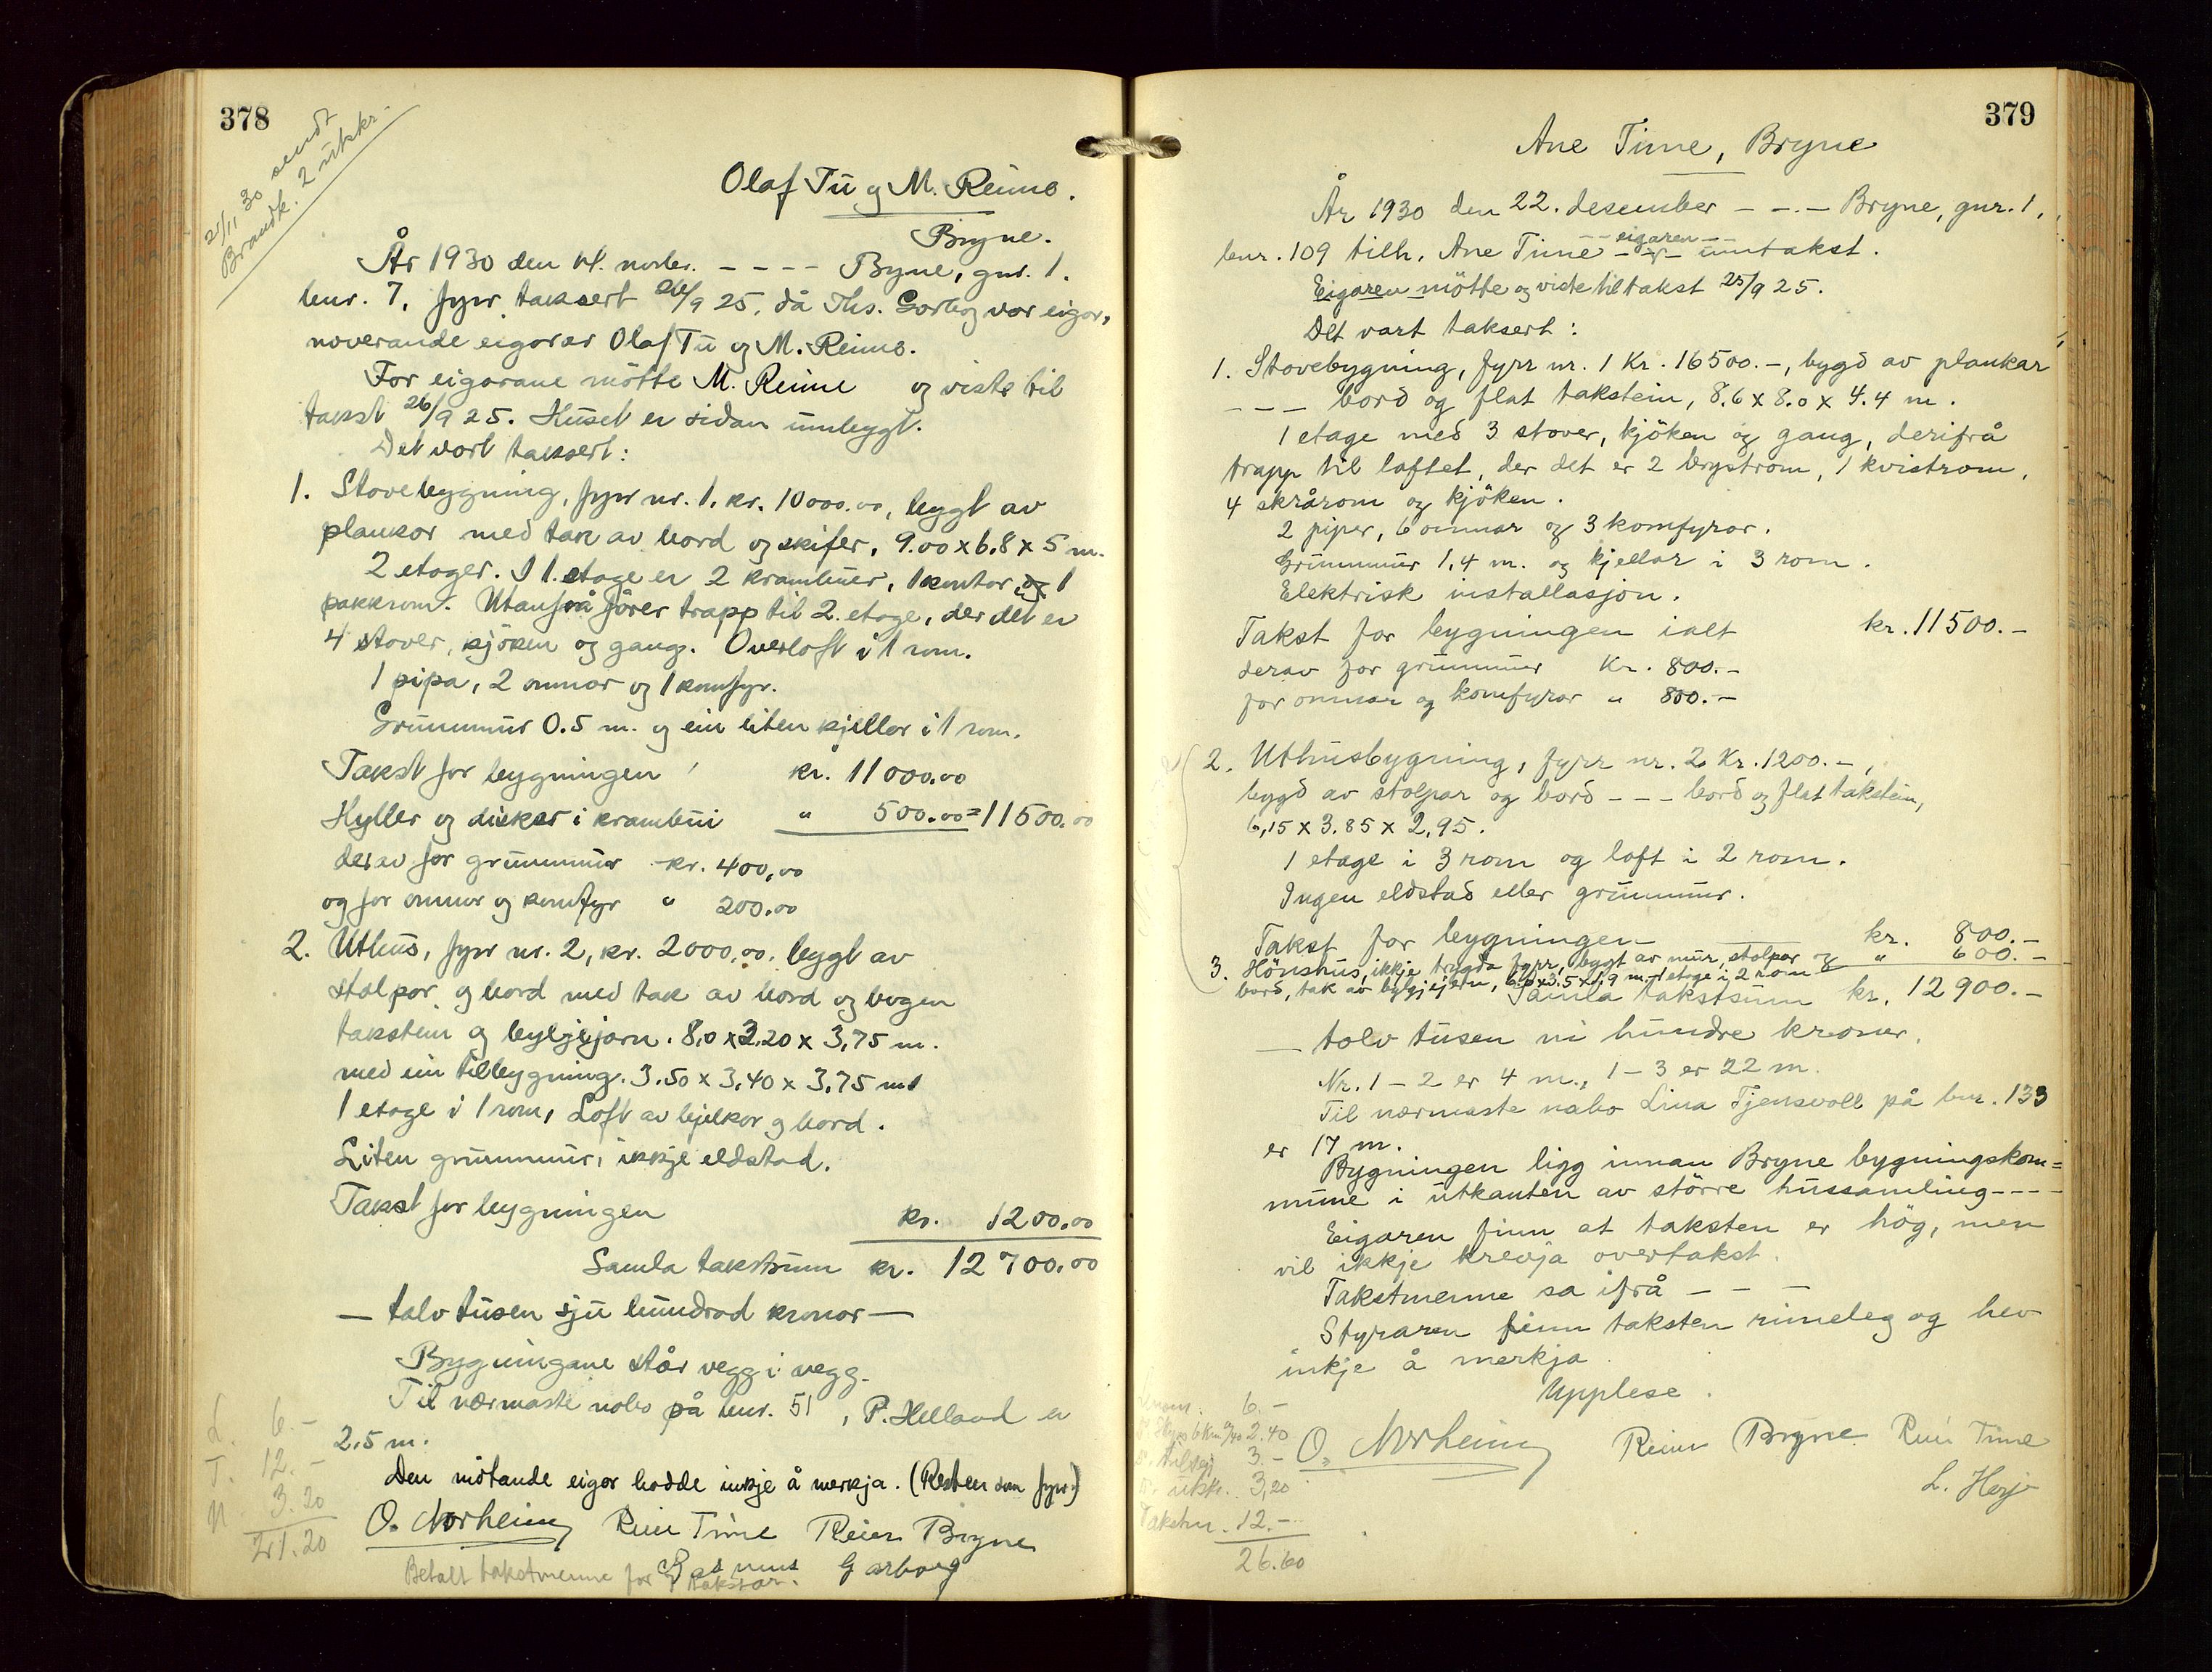 378
21/11 30 sendt
Brandk. 2 utskr.
Olaf Tu og M. Reime.
Bryne.
År 1930 den 14. novbr. - - - - Bryne, gnr. 1.
bnr. 7, fyrr taksert 26/9 25, då Ths. Garborg var eigar,
noverande eigarar Olaf Tu og M. Reime.
For eigarane møtte M. Reime og viste til
takst 26/9 25. Huset er sidan umbygt.
Det vart taksert:
1. Stovebygning, fyrr nr. 1. kr. 10000.00, bygt av
plankar med tak av bord og skifer, 9.00 x 6.8 x 5 m.
2 etager. I 1. etage er 2 krambuer, 1 kontor og 1
pakkrom. Utanfrå fører trapp til 2. etage, der det er
4 stover, kjøken og gang. Overloft i 1 rom.
1 pipa, 2 omnar og 1 komfyr.
Grunnmur 0.5 m. og ein liten kjellar i 1 rom.
Takst for bygningen kr. 11000.00
Hyller og diskar i krambui " 500.00 = 11500.00
derav for grunnmur kr. 400,00
og for omnar og komfyr " 200.00
2. Uthus, fyrr nr. 2, kr. 2000,00, bygt av
stolpar og bord med tak av bord og bogen
takstein og bylgjejarn. 8,0 x 3.20 x 3,75 m.
med ein tilbygning. 3.50 x 3,40 x 3,75 m.
1 etage i 1 rom, Loft av bjelkar og bord.
Liten grunnmur, ikkje eldstad.
Takst for bygningen kr. 1200.00
Samla takstsum kr. 12700.00
— tolv tusen sju hundrad kronor —
Bygningane står vegg i vegg.
Til nærmaste nabo på bnr. 51, P. Helland er
2.5 m.
Den møtande eigar hadde inkje å merkja. (Resten som fyrr)
O. Norheim Reier Time Reier Bryne
Rasmus Garborg
Betalt takstmenne for 7 takstar.
L. 6.-
T. 12.-
U. 3.20
21.20
379
Ane Time, Bryne
År 1930 den 22. desember - - - - Bryne, gnr. 1,
- - eigaren - -
bnr. 109 tilh. Ane Time - - umtakst.
Eigaren møtte og viste til takst 25/9 25.
Det vart taksert:
1. Stovebygning, fyrr nr. 1 Kr. 16500.-, bygd av plankar
- - - bord og flat takstein, 8.6 x 8.0 x 4.4 m.
1 etage med 3 stover, kjøken og gang, derifrå
trapp til loftet, der det er 2 brystrom, 1 kvistrom,
4 skrårom og kjøken.
2 piper, 6 omnar og 3 komfyrar.
Grunnmur 1,4 m. og kjellar i 3 rom.
Elektrisk installasjon.
Takst for bygningen ialt kr. 11500.-
derav for grunnmur Kr. 800.-
for omnar og komfyrar " 800.-
2. Uthusbygning, fyrr nr. 2 Kr. 1200.-,
bygd av stolpar og bord - - - bord og flat takstein,
6,15 x 3.85 x 2,95.
1 etage i 3 rom og loft i 2 rom.
Ingen eldstad eller grunnmur.
Takst for bygningen kr. 800.-
3. Hønshus, ikkje trygda fyrr, bygt av mur, stolpar og " 600.-
bord, tak av bylgjejern, 6.0 x 3.5 x 1,9 m. 1 etage i 2 rom
Samla takstsum kr. 12900.-
— tolv tusen ni hundre kroner.
Nr. 1 - 2 er 4 m., 1 - 3 er 22 m.
Til nærmaste nabo Lina Tjensvoll på bnr. 133
er 17 m.
Bygningen ligg innan Bryne bygningskom=
mune i utkanten av større hussamling - - - -
Eigaren finn at taksten er høg, men
vil ikkje krevja overtakst.
Takstmenne sa ifrå - - -
Styraren finn taksten rimeleg og hev
inkje å merkja.
Upplese.
O. Norheim Reier Bryne Reier Time
6.-
2.40
3.-
utskr. 3,20
Takstm. 12.-
26.60